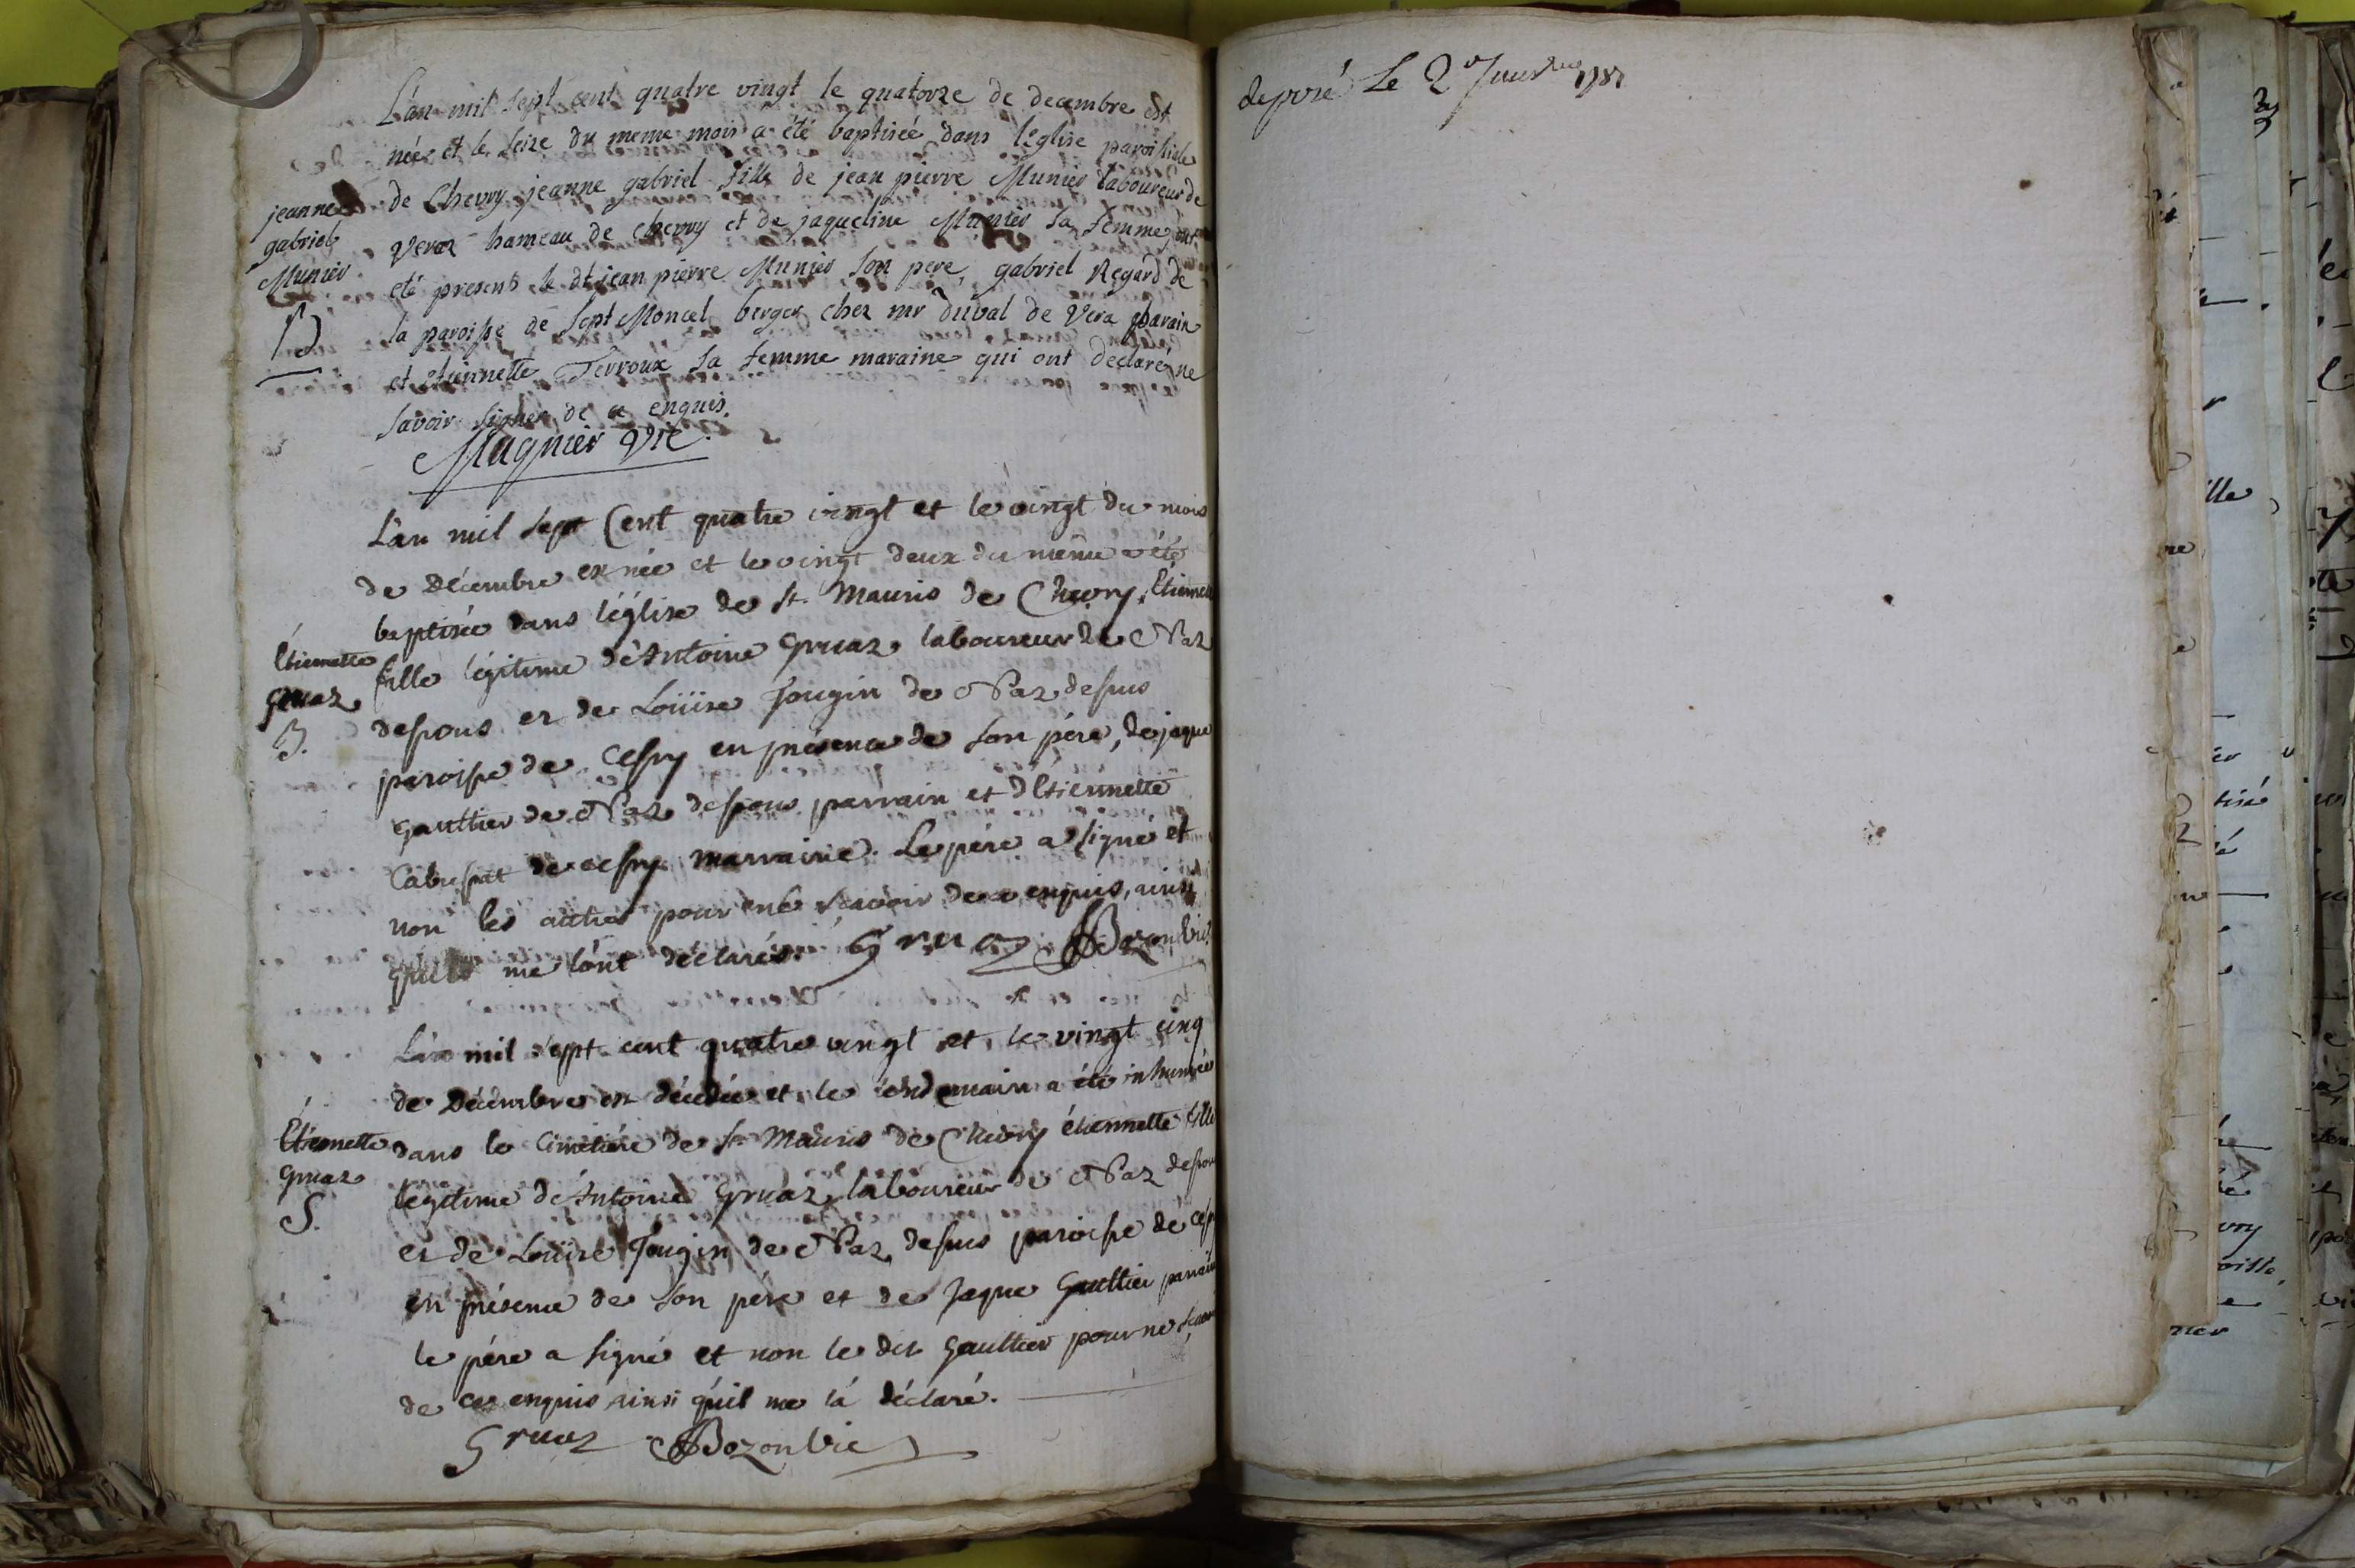 L'an mil sept cent quatre vingt le quatorze de decembre est
née et le seize du meme mois a été baptisée dans l'eglise paroissiale
de Chevry jeanne gabriel fille de jean pierre Munier laboureur de
Veraz hameau de chevry et de jaqueline Munier sa femme, ont
eté present le dt jean pierre Munier son pere, gabriel Regard de
la paroisse de Sept Moncel berger chez mr duval de Vera parain
et etiennette Ferroux sa femme maraine qui ont declaré ne
savoir signer de ce enquis.
Mugnier vre
jeanne
gabriel
Munier
B
L'an mil sept Cent quatre vingt et le vingt du mois
de Décembre est née et le vingt deux du même a été
baptisée dans l'église de st. Mauris de Chevry, Etiennette
fille légitime d'Antoine Gruaz laboureur de Naz
dessous et de Loüise Fougin de Naz dessus
paroisse de Cessy en présence de son pére, de jaque
Gaultier de Naz dessous parrain et d'Etiennette
de cessy marraine. Le pére a signé et
non les autres pour ne scavoir de ce enquis, ainsi
qu'ils me l'ont déclarés. Gruaz Bozon Vic
Etiennette
Gruaz
B.
L'an mil sept cent quatre vingt et le vingt cinq
de Décembre est décédée et le lendemain a été inhumée
dans le Cimetiére de st Mauris de Chevry étiennette fille
legitime d'Antoine Gruaz laboureur de Naz dessous
et de Loüise Fougin de Naz dessus paroisse de cessy
en présence de son pére et de Jaque Gaultier parrain
le pére a signé et non le dit Gaultier pour ne scavoir
de ce enquis ainsi qu'il me l'a déclaré.
Gruaz Bozon Vic
Etiennette
Gruaz
S.
deposé Le 2 1781